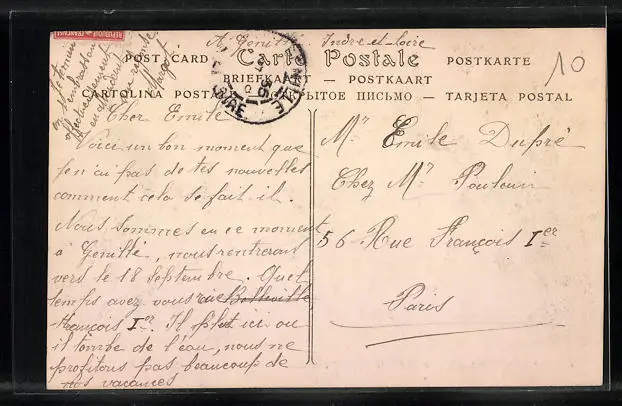 A Genillé Indre-et-Loire
POST CARD Carte Postale POSTKARTE
BRIEFKAART — POSTKAART
CARTOLINA POSTALE ОТКРЫТОЕ ПИСЬМО — TARJETA POSTAL
10
Cher Emile
Voici un bon moment que
j'en ai pas de tes nouvelles
comment cela se fait il.
Nous sommes en ce moment
à Genillé, nous rentrerons
vers le 18 Septembre. Quel
temps avez vous rue Belleville
François Ier. Il pleut ici ou
il tombe de l'eau, nous ne
profitons pas beaucoup de
nos vacances
en t'embrassant
affectueusement
en attendant
Margot
Mr Emile Dupré
Chez Mr Poulain
56 Rue François Ier
Paris